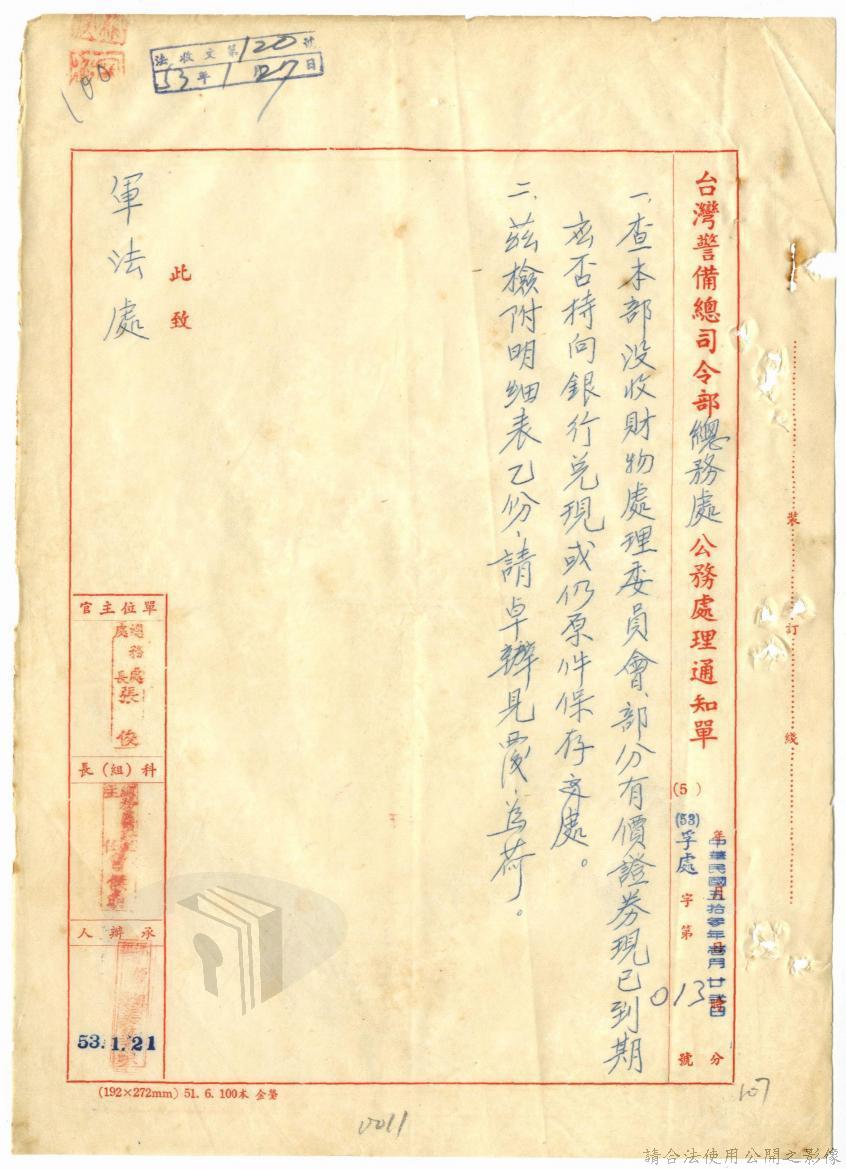 法收文第120號
53年1月27日
100
台灣警備總司令部總務處公務處理通知單
(5)
(53)孚處字第013號
中華民國五拾參年壹月廿貳日
年月日時分
一、查本部没收財物處理委員會、部分有價證券現已到期
應否持向銀行兑現或仍原件保存交處。
二、茲檢附明細表乙份、請卓辦見覆、為荷。
此致
軍法處
單位主官
總務處處長張俊
科(組)長
承辦人
53.1.21
(192×272mm) 51. 6. 100本 金
裝訂線
107
0011
請合法使用公開之影像